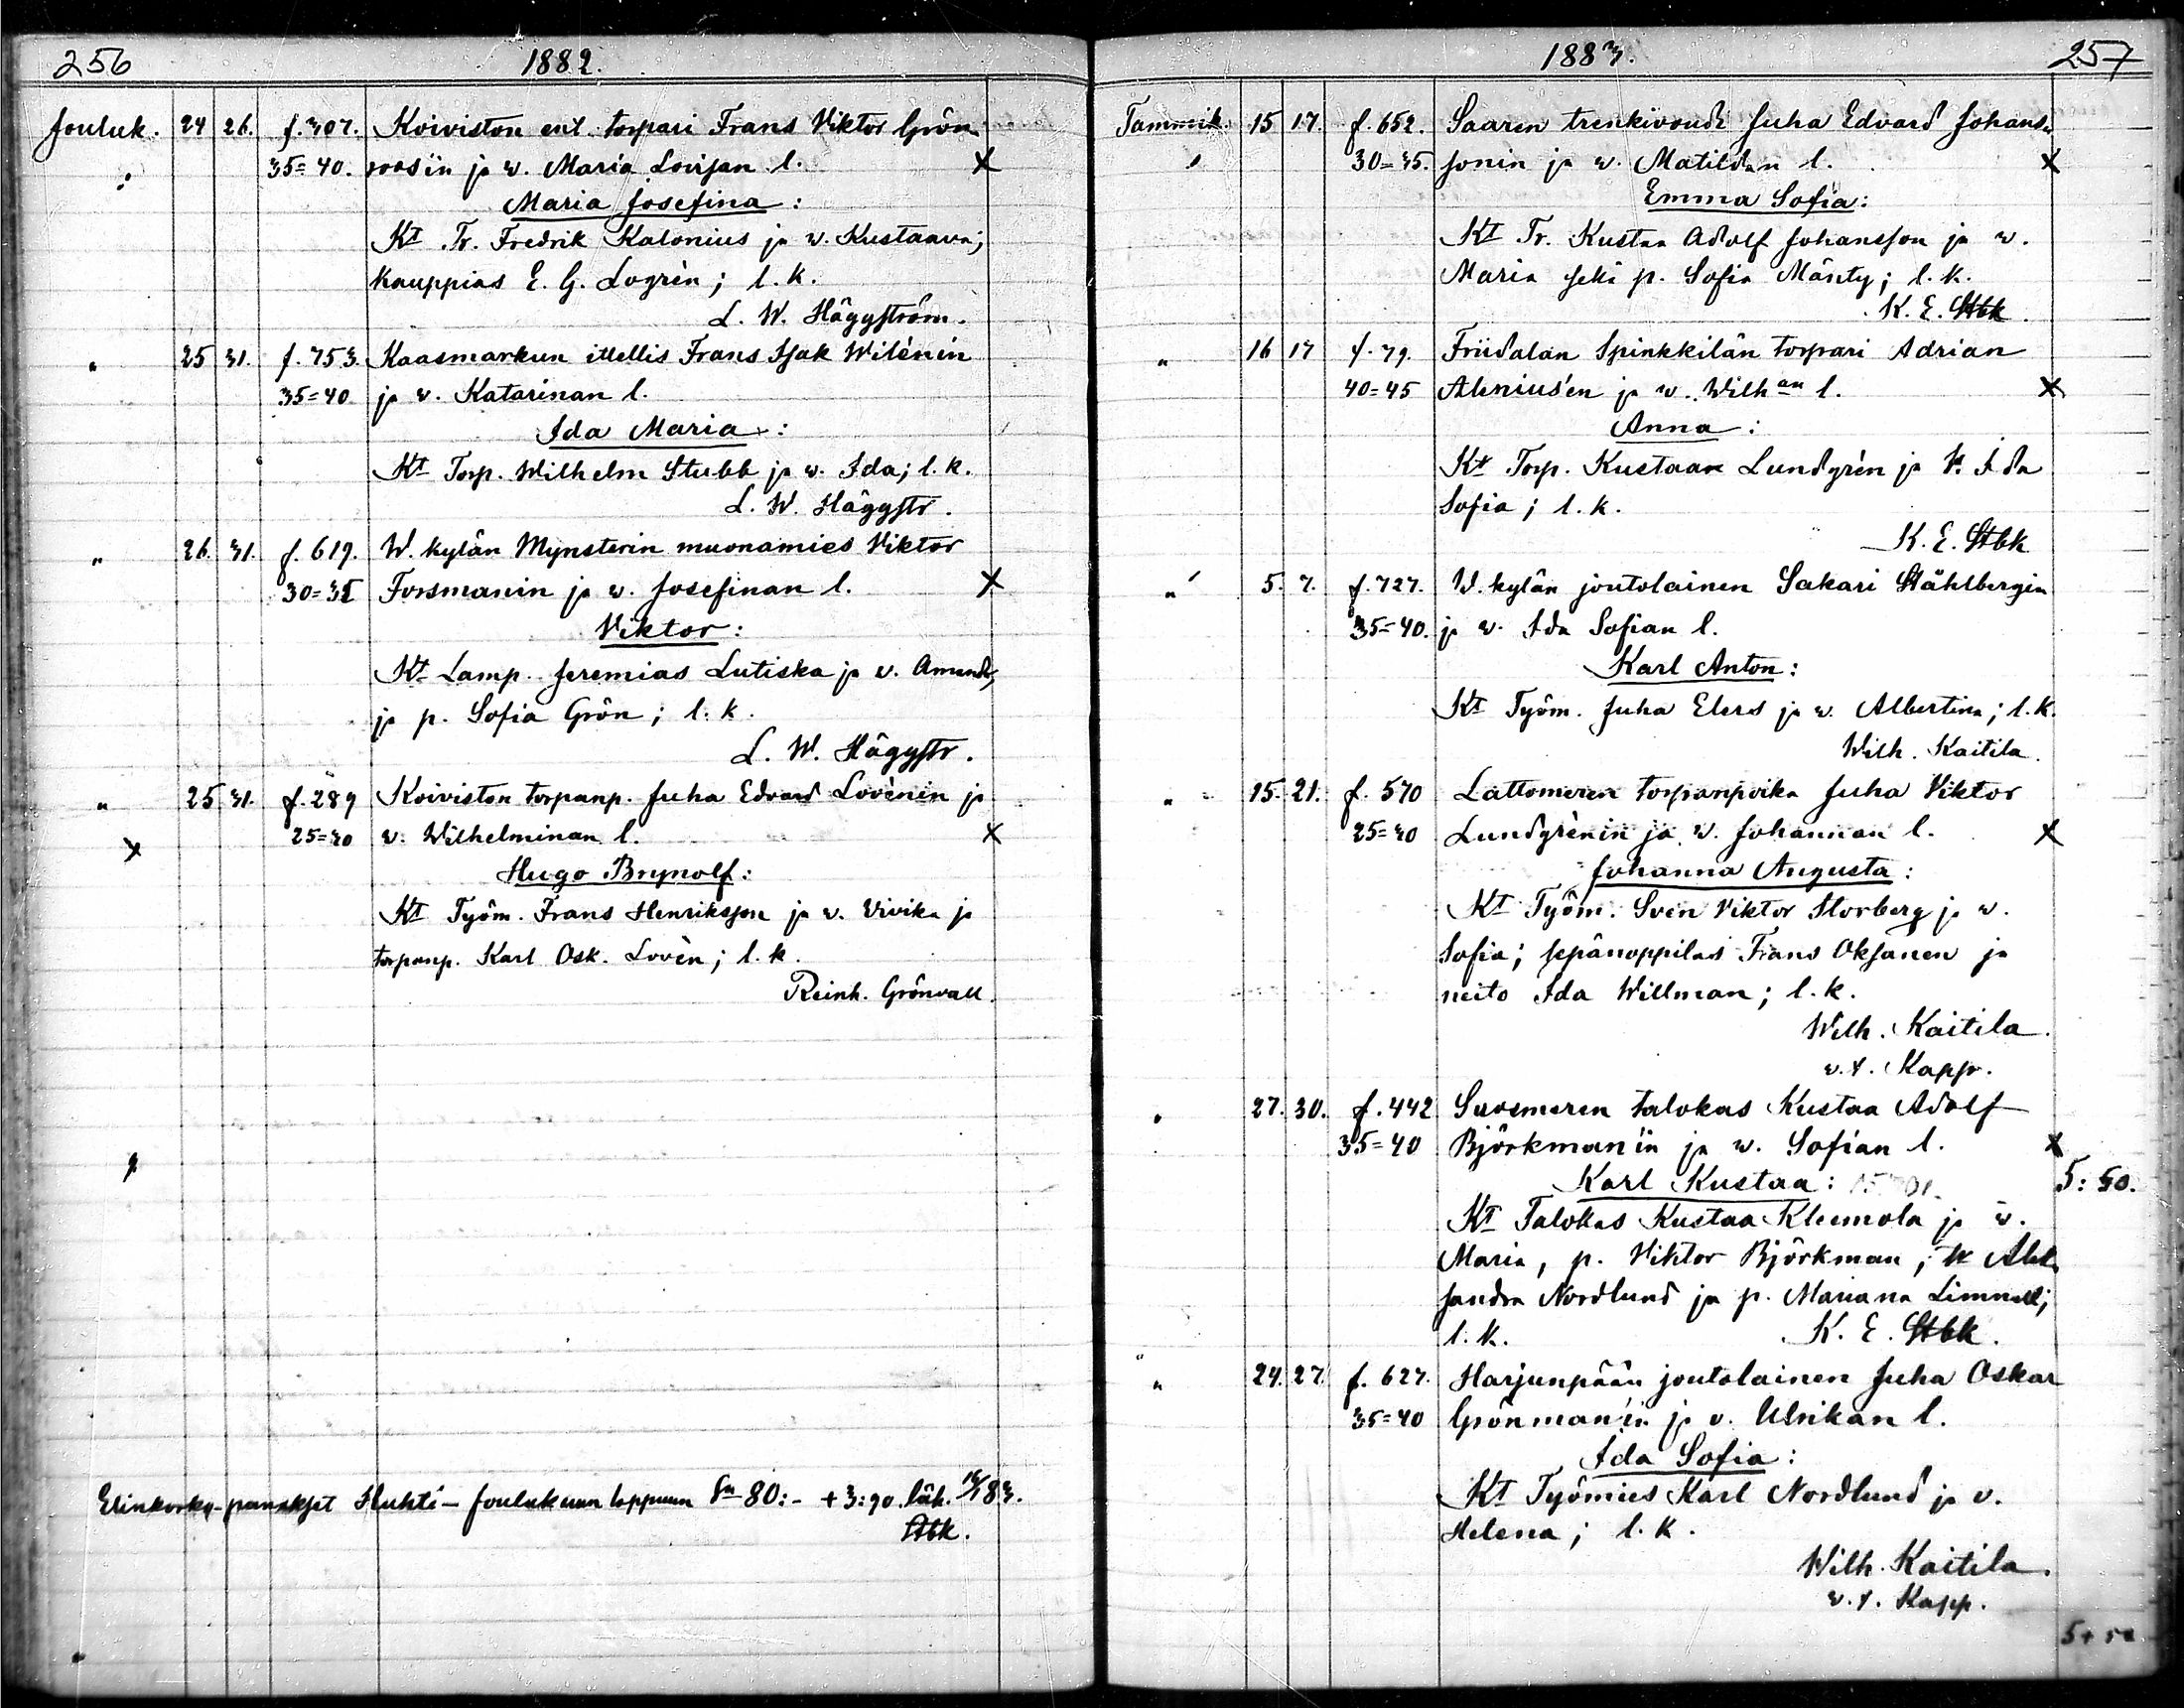 256 1882.
Jouluk. 24 26. f. 307. Koiviston ent. torpari Frans Viktor Grön-
" 35=40. roosin ja w. Maria Lovisan l. X
Maria Josefina:
Kt Tr. Fredrik Kalonius ja w. Kustaava;
kauppias E. G. Logrén; l. k.
L. W. Häggström.
" 25 31. f. 753. Kaasmarkun itellis Frans Isak Wilénin
35=40 ja w. Katarinan l.
Ida Maria:
Kt Torp. Wilhelm Stubb ja w. Ida; l. k.
L. W. Häggstr.
" 26. 31. f. 619. W. kylän Mynsterin muonamies Viktor
30=35 Forsmanin ja w. Josefinan l. X
Viktor:
Kt Lamp. Jeremias Lutiska ja v. Amanda,
ja p. Sofia Grön; l. k.
L. W. Häggstr.
" 25 31. f. 289 Koiviston torpanp. Juha Edvard Lovénin ja
X 25=30 v. Wilhelminan l. X
Hugo Brynolf:
Kt Työm. Frans Henriksson ja v. Vivika ja
torpanp. Karl Osk. Lovén; l. k.
Reinh. Grönvall.
Huhti- Joulukuun loppuun 80:- + 3:90 läh.
Stbk.
1883. 257
Tammik. 15 17. f. 652. Saaren trenkivouti Juha Edvard Johans-
" 30=35. sonin ja w. Matildan l. X
Emma Sofia:
Kt Tr. Kustaa Adolf Johansson ja w.
Maria sekä p. Sofia Mänty; l. k.
K. E. Stbk.
" 16 17 f. 79. Friidalan Spinkkilän torpari Adrian
40=45 Aleniusen ja w. Wilhan l. X
Anna:
Kt Torp. Kustaa Lundgrén ja V. Ida
Sofia; l. k.
K. E. Stbk
" 5. 7. f. 727. W. kylän joutolainen Sakari Ståhlbergin
35=40. ja w. Ida Sofian l.
Karl Anton:
Kt Työm. Juha Elers ja w. Albertina; l. k.
Wilh. Kaitila.
" 15. 21. f. 570 Lattomeren torpanpoika Juha Viktor
25=30 Lundgrénin ja w. Johannan l. X
Johanna Augusta:
Kt Työm. Sven Viktor Storberg ja w.
Sofia; sepänoppilas Frans Oksanen ja
neito Ida Willman; l. k.
Wilh. Kaitila.
v.t. Kappr.
" 27. 30. f. 442 Suosmeren talokas Kustaa Adolf
35=40 Björkman'in ja w. Sofian l. X
Karl Kustaa: 5:50.
Kt Talokas Kustaa Kleemola ja w.
Maria, p. Viktor Björkman; Alek-
sandra Nordlund ja p. Mariana Limnell;
l. k. K. E. Stbk.
" 24. 27. f. 627. Harjunpään joutolainen Juha Oskar
35=40 Grönman'in ja v. Ulrikan l.
Ida Sofia:
Kt Työmies Karl Nordlund ja v.
Helena; l. k.
Wilh. Kaitila.
v.t. Kapp.